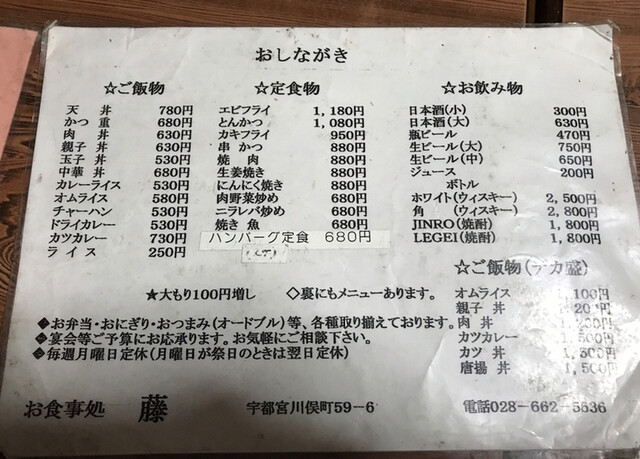 おしながき
☆ご飯物
天丼 780円
かつ重 680円
肉丼 630円
親子丼 630円
玉子丼 530円
中華丼 680円
カレーライス 530円
オムライス 580円
チャーハン 530円
ドライカレー 530円
カツカレー 730円
ライス 250円
☆定食物
エビフライ 1,180円
とんかつ 1,080円
カキフライ 950円
串かつ 880円
焼肉 880円
生姜焼き 880円
にんにく焼き 880円
肉野菜炒め 880円
ニラレバ炒め 880円
焼き魚
ハンバーグ定食 680円
☆お飲み物
日本酒(小) 300円
日本酒(大) 630円
瓶ビール 470円
生ビール(大) 750円
生ビール(中) 650円
ジュース 200円
ボトル
ホワイト(ウィスキー) 2,500円
角(ウィスキー) 2,800円
JINRO(焼酎) 1,800円
LEGEI(焼酎) 1,800円
☆ご飯物(デカ盛)
オムライス 1,100円
親子丼
肉丼
カツカレー 1,500円
カツ丼 1,500円
唐揚丼 1,500円
★大もり100円増し ◇裏にもメニューあります。
◆お弁当・おにぎり・おつまみ(オードブル)等、各種取り揃えております。
◆宴会等ご予算にお応承ります。お気軽にご相談下さい。
◆毎週月曜日定休(月曜日が祭日のときは翌日定休)
お食事処 藤 宇都宮川俣町59-6 電話028-662-5836